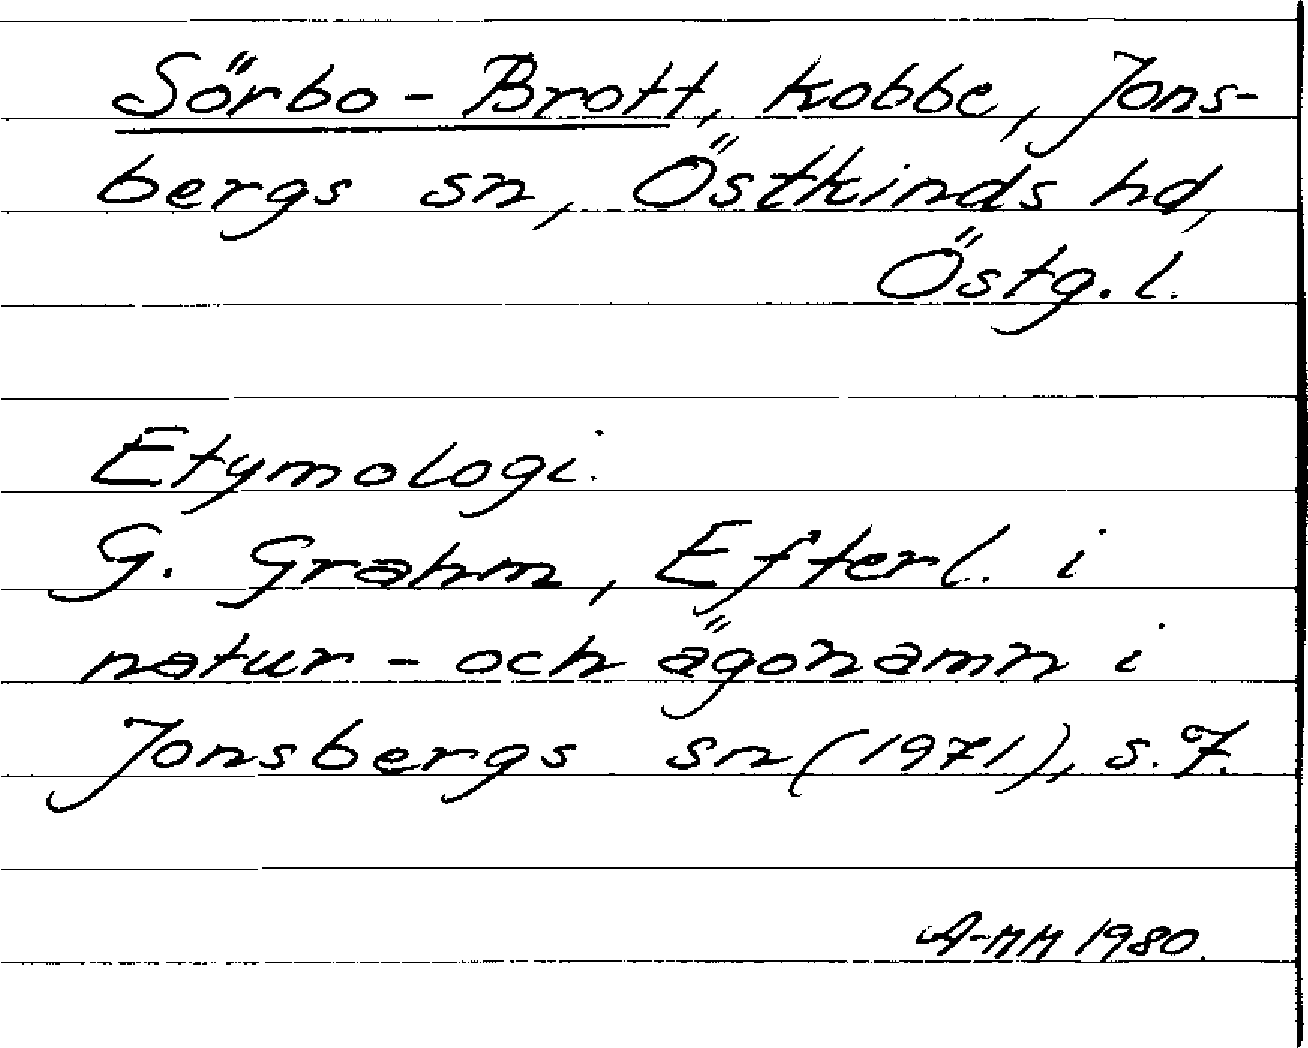 Sörbo-Brott, kobbe, Jons-
bergs sn, Östkinds hd,
Östg. l.
Etymologi.
G. Grahm, Efterl. i
natur- och ägonamn i
Jonsbergs sn (1971), s. 7.
A-MM 1980.